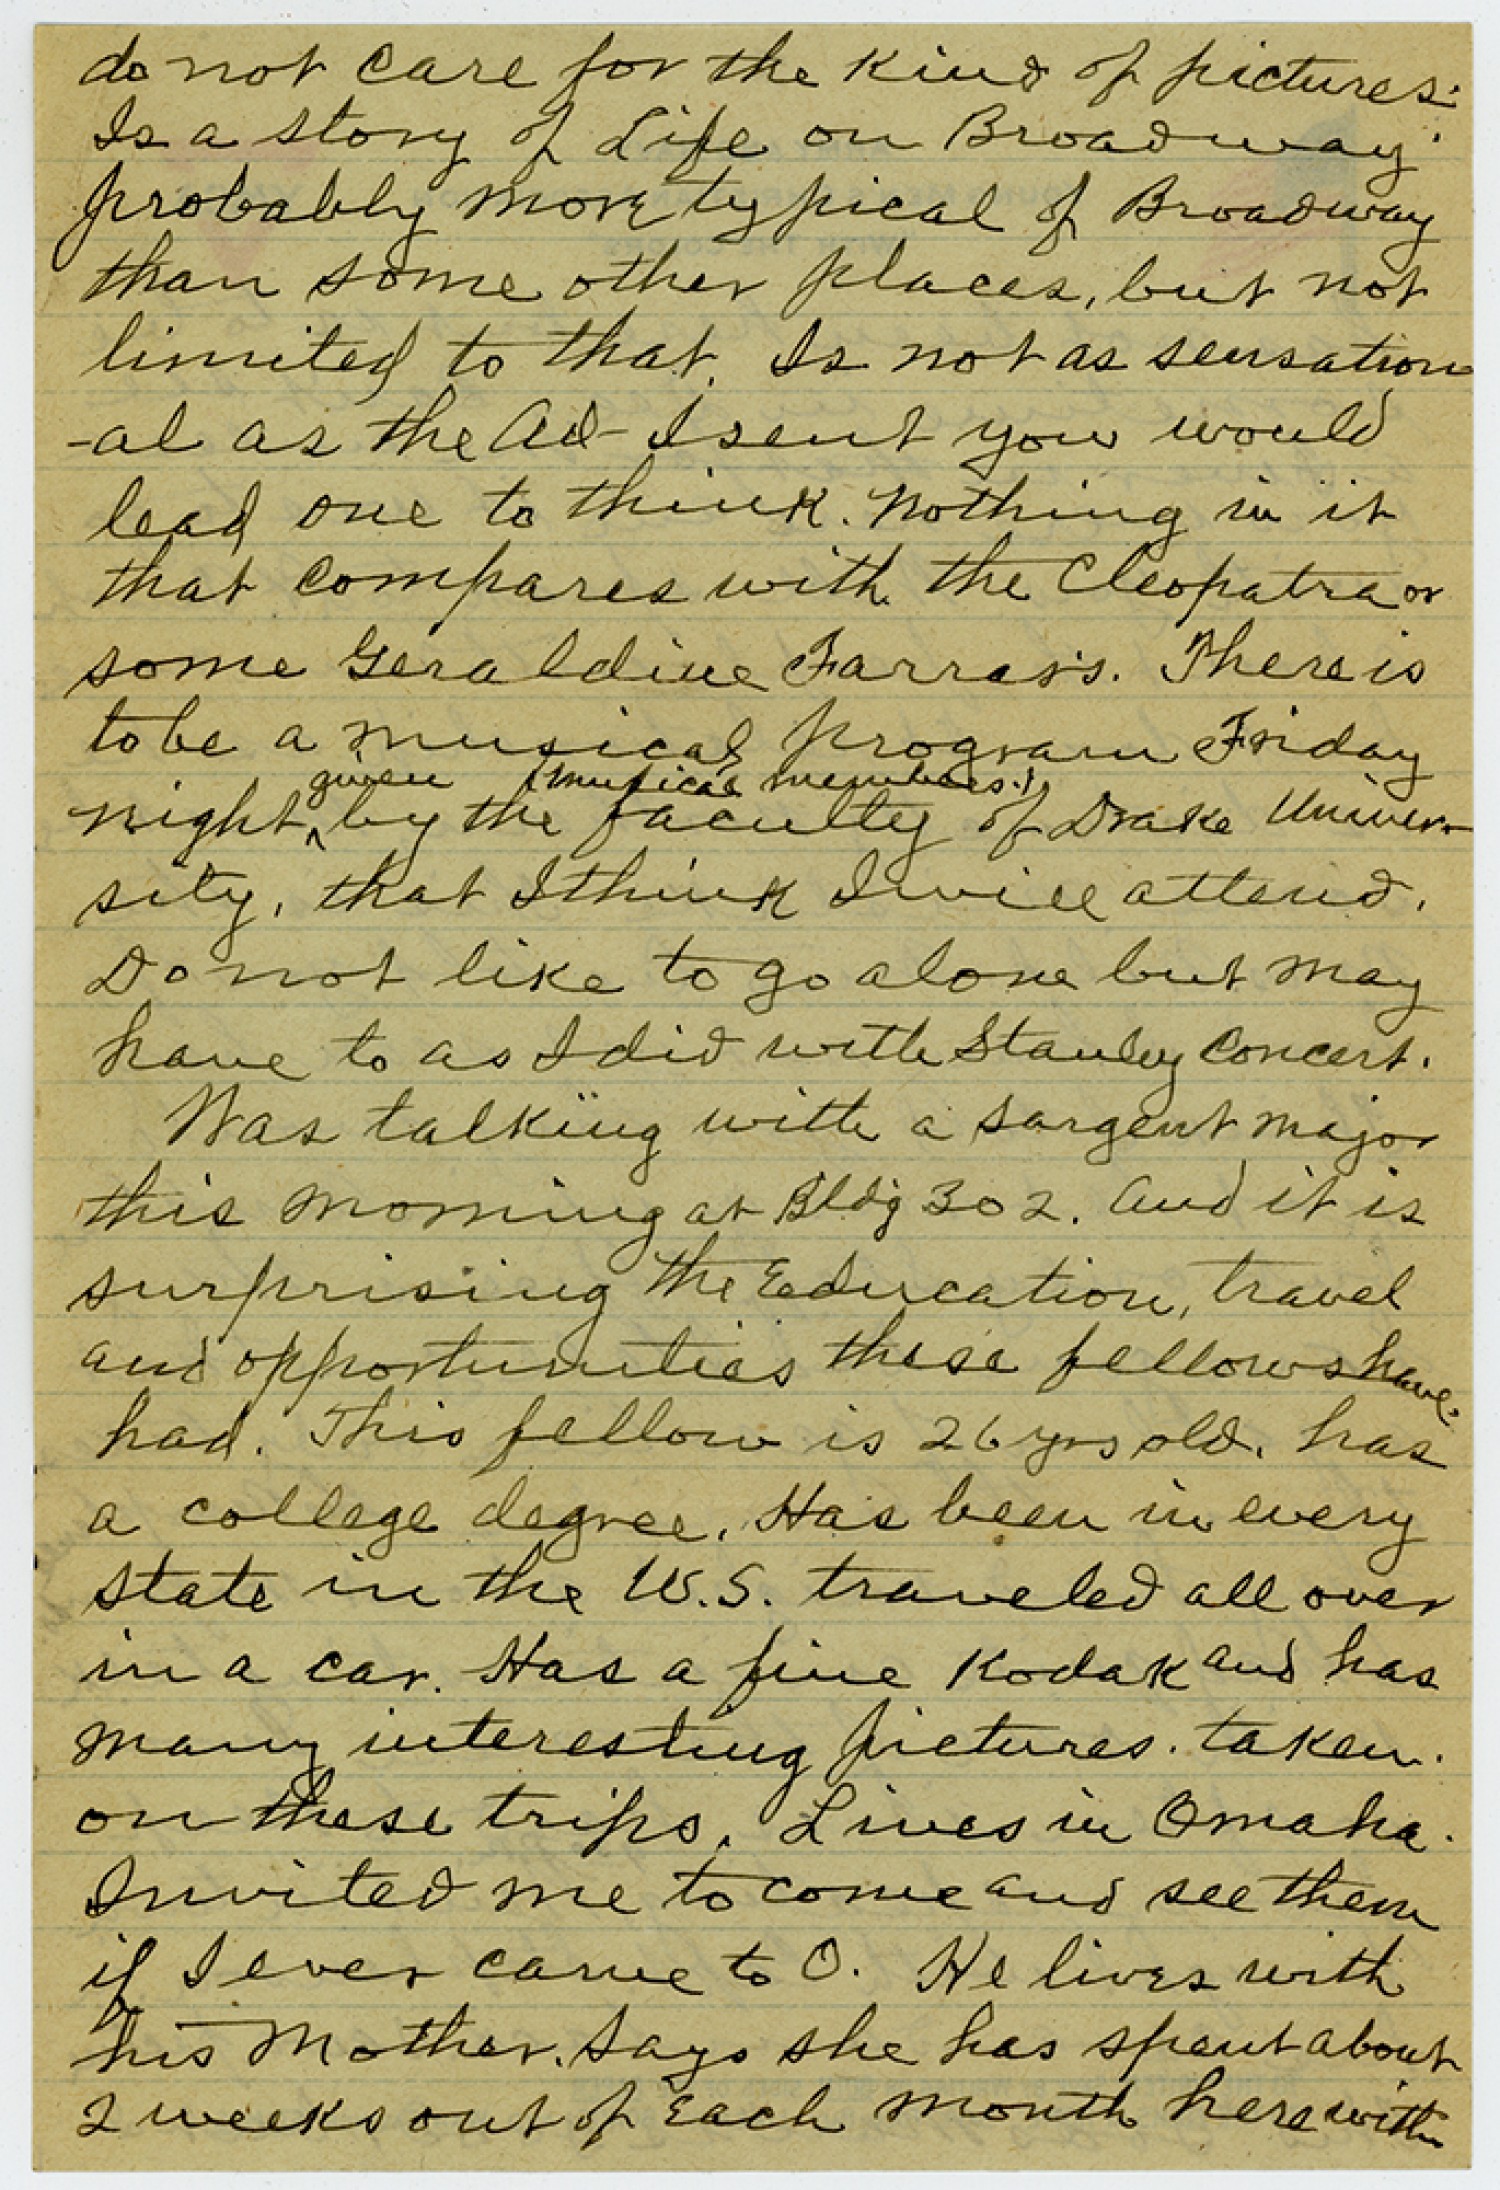 do not care for the kind of pictures.
Is a story of Life on Broadway.
probably more typical of Broadway
than some other places, but not
limited to that. Is not as sensation
-al as the Ad- I sent you would
lead one to think. Nothing in it
that compares with the Cleopatra or
some Geraldine Farrars. There is
to be a musical program Friday
given (musical members.)
night, by the faculty of Drake Univer-
sity, that I think I will attend.
Do not like to go alone but may
have to as I did with Stanley Concert.
Was talking with a sargent major
this morning at Bldg 302. And it is
surprising the Education, travel
and opportunities these fellows have.
had. This fellow is 26 yrs old. has
a college degree. Has been in every
state in the U.S. traveled all over
in a car. Has a fine Kodak and has
many interesting pictures. taken.
on these trips. Lives in Omaha.
Invited me to come and see them
if I ever came to O. He lives with
his Mother. Says she has spent about
2 weeks out of Each month here with